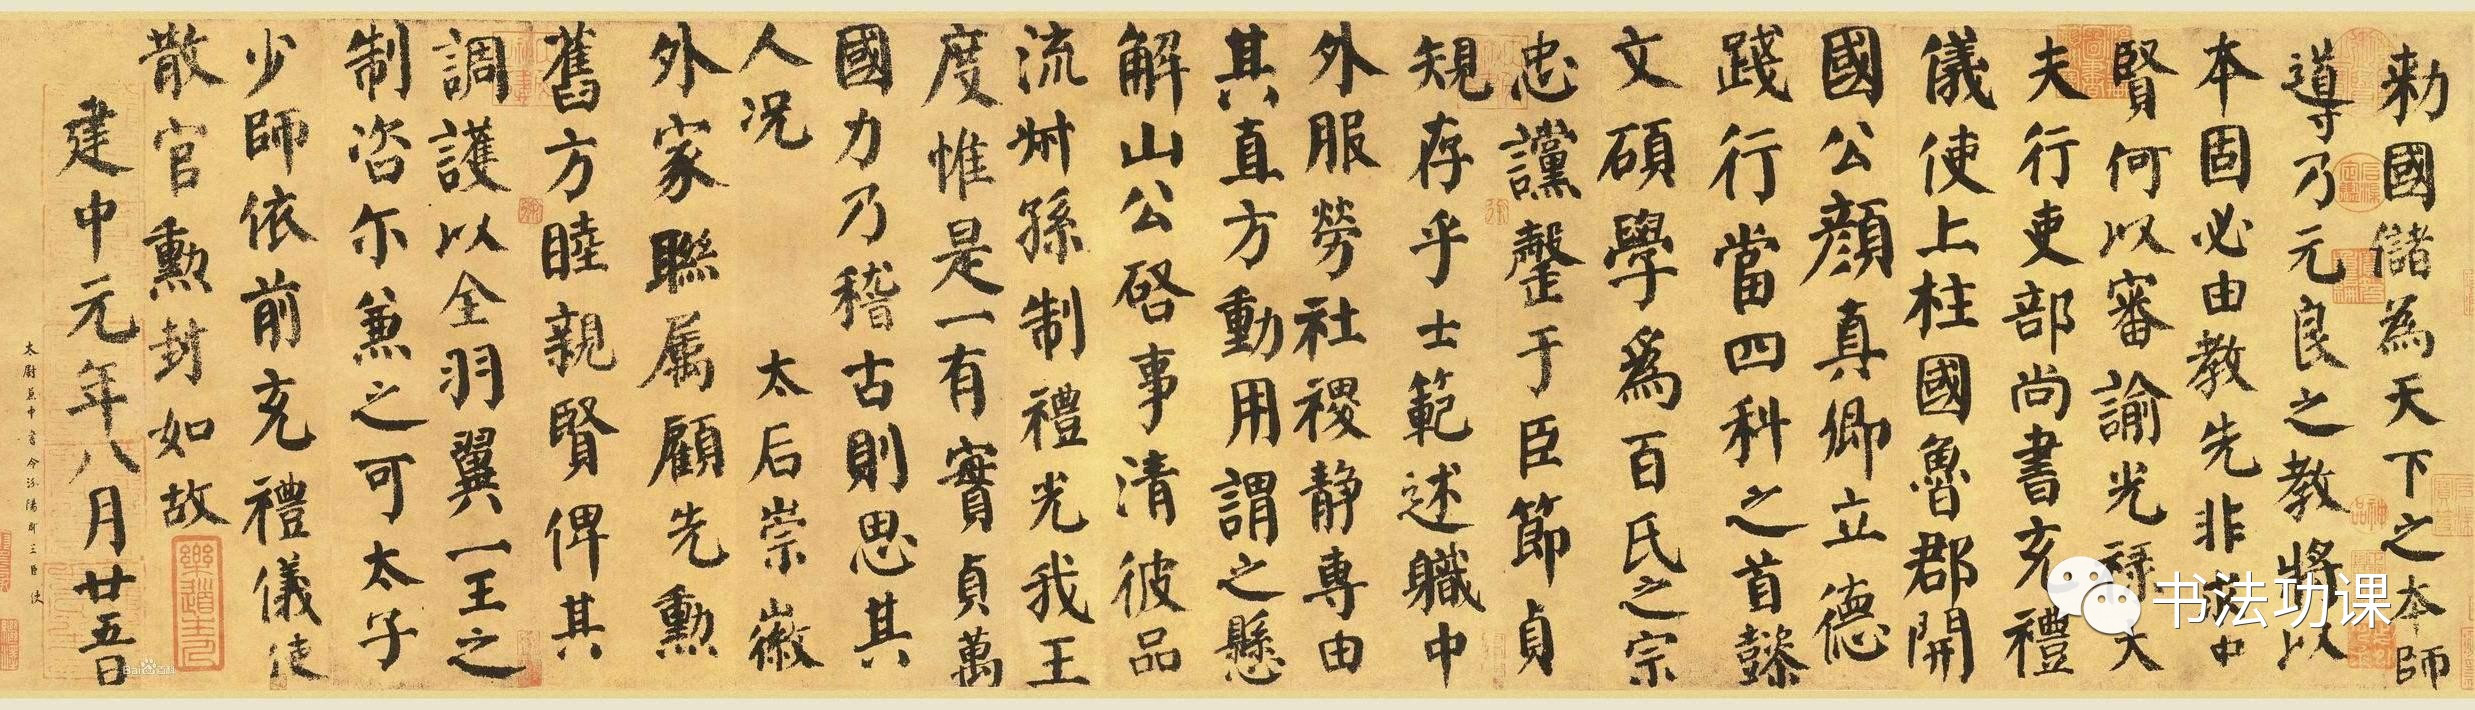 勅國儲為天下之本師
導乃元良之教將以
本固必由教先非求中
賢何以審諭光祿大
夫行吏部尚書充禮
儀使上柱國魯郡開
國公顏真卿立德
踐行當四科之首懿
文碩學爲百氏之宗
忠讜罄于臣節貞
規存乎士範述職中
外服勞社稷静專由
其直方動用謂之懸
解山公啓事清彼品
流叔孫制禮光我王
度惟是一有實貞萬
國力乃稽古則思其
人況 太后崇徽
外家聯属顧先勳
舊方睦親賢俾其
調護以全羽翼一王之
制咨尔兼之可太子
少師依前充禮儀使
散官勳封如故
建中元年八月廿五日
太尉兼中書令汾陽郡王臣使
书法功课
Baidu百科